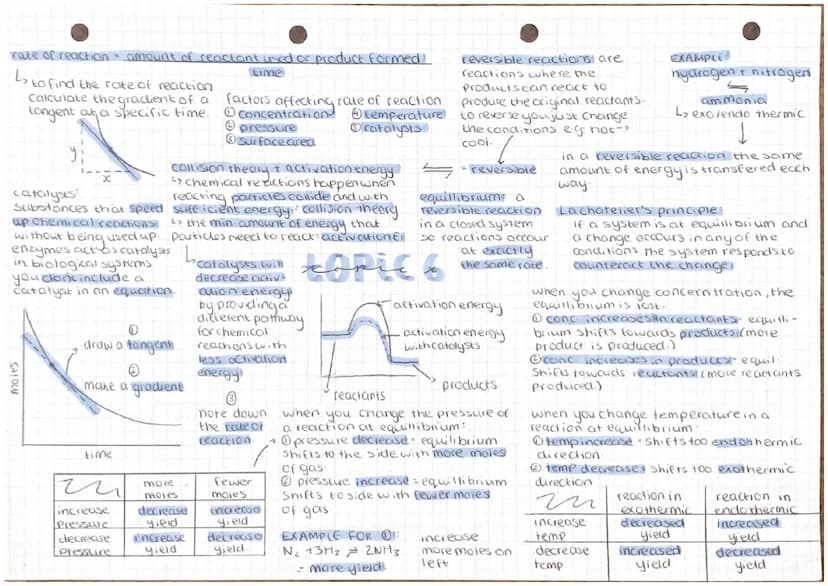 rate of reaction = amount of reactant used or product formed
time
↳ to find the rate of reaction
calculate the gradient of a
tangent at a specific time.
y
x
factors affecting rate of reaction
① concentration
② pressure
③ surface area
④ temperature
⑤ catalysts
reversible reactions are
reactions where the
products can react to
produce the original reactants.
to reverse you just change
the conditions e.g hot →
cool.
EXAMPLE:
hydrogen + nitrogen
⇌
ammonia
↳ exo/endo thermic
in a reversible reaction the same
amount of energy is transfered each
way.
⇌ = reversible
collision theory + activation energy
↳ chemical reactions happen when
reacting particles collide and with
sufficient energy = collision theory
↳ the min amount of energy that
particles need to react = activation E
catalysts:
substances that speed
up chemical reactions
without being used up.
enzymes act as catalysts
in biological systems
you don't include a
catalyst in an equation
↳ catalysts will
decrease activ-
ation energy
by providing a
different pathway
for chemical
reactions with
less activation
energy
equilibrium: a
reversible reaction
in a closed system
so reactions occur
at exactly
the same rate.
La chatelier's principle:
if a system is at equilibrium and
a change occurs in any of the
conditions the system responds to
counteract the change.
TOPIC 6
topic 6
activation energy
activation energy
with catalysts
reactants
products
moles
time
①
draw a tangent
②
make a gradient
③
note down
the rate of
reaction
when you change concerntration, the
equilibrium is lost.
① conc increases in reactants = equili-
brium shifts towards products (more
product is produced.)
② conc increases in products = equil
shifts towards reactants (more reactants
produced.)
when you change the pressure of
a reaction at equilibrium:
① pressure decrease = equilibrium
shifts to the side with more moles
of gas.
② pressure increase = equilibrium
shifts to side with fewer moles
of gas
EXAMPLE FOR ①:
N₂ + 3H₂ ⇌ 2NH₃
= more yield
increase
more moles on
left
when you change temperature in a
reaction at equilibrium:
① temp increase = shifts too endothermic
direction.
② temp decrease = shifts too exothermic
direction
more moles
fewer moles
increase pressure
decrease yield
increase yield
decrease pressure
increase yield
decrease yield.
reaction in exothermic
reaction in endothermic
increase temp
decreased yield
increased yield
decrease temp
increased yield
decreased yield